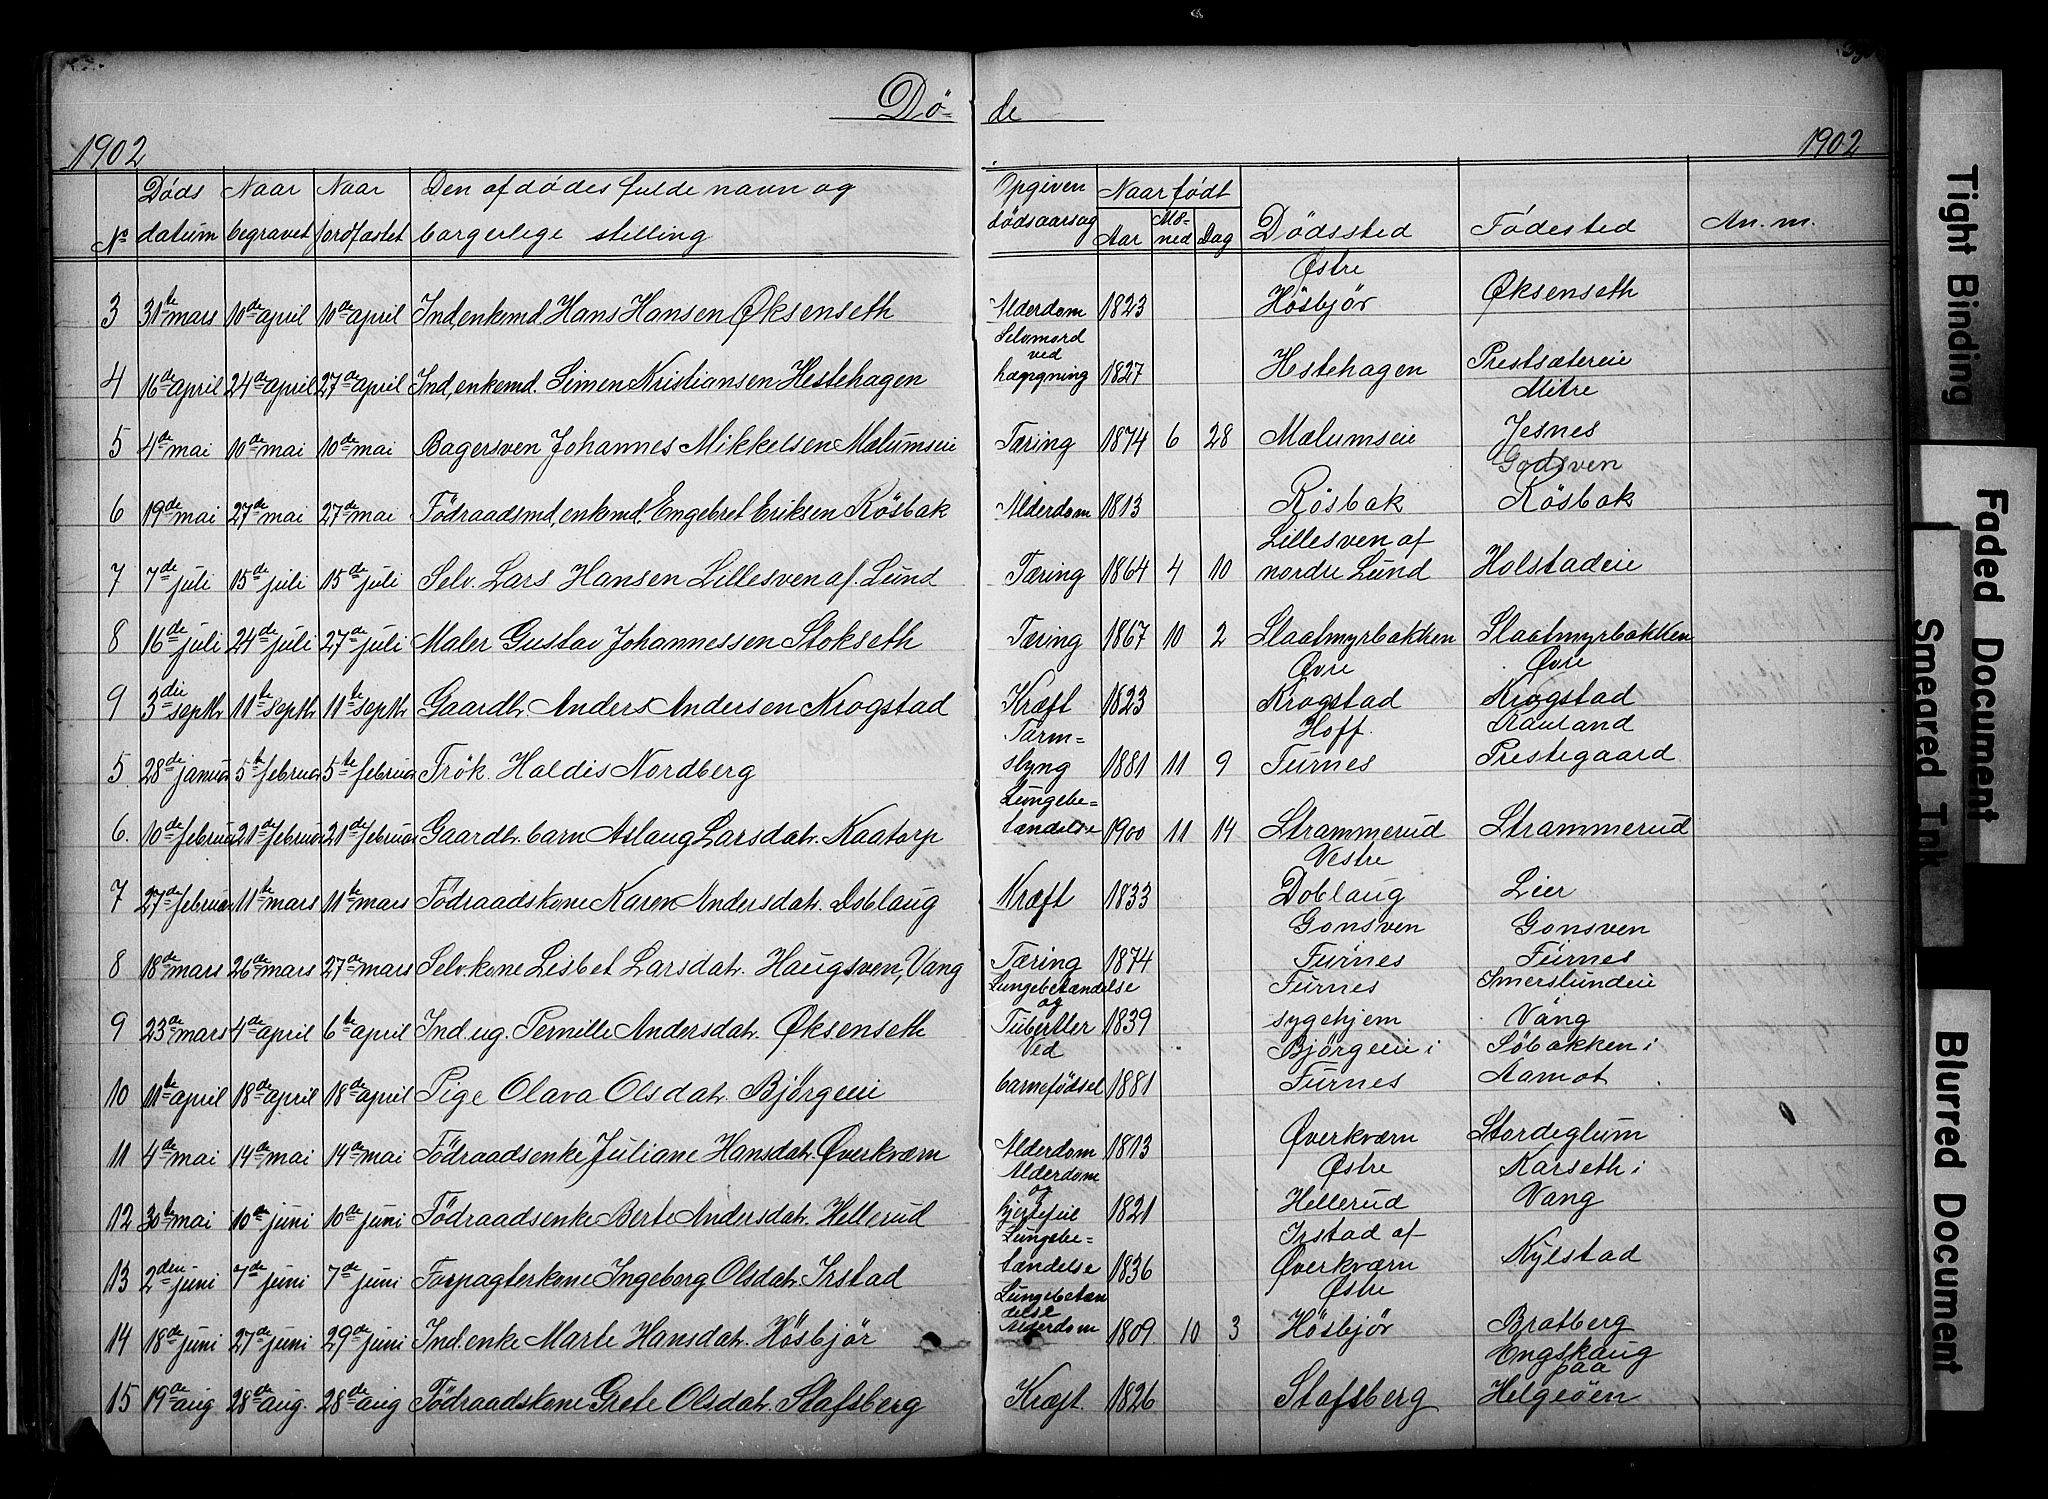 Dö- de
1902 1902
No Døds datum Naar begravet Naar jordfæstet Den afdødes fulde navn og borgerlige stilling Opgiven dødsaarsag Naar født Aar Maaned Dag Dødssted Fødested An.m.
3 31te mars 10de april 10de april Ind., enkemd. Hans Hansen Øksenseth Alderdom 1823 Østre Hösbjör Øksenseth
4 16de april 24de april 27de april Ind., enkemd. Simen Kristiansen Hestehagen Selvmord ved hængning 1827 Hestehagen Prestsætereie Mitre
5 4de mai 10de mai 10de mai Bagersven Johannes Mikkelsen Mælumseie Tæring 1874 6 28 Mælumseie Jesnes
6 19de mai 27de mai 27de mai Födraadsmd., enkemd. Engebret Eriksen Rösbak Alderdom 1813 Rösbak Godsven Rösbak
7 7de juli 15de juli 15de juli Selv. Lars Hansen Lillesven af Lund Tæring 1864 4 10 Lillesven af nordre Lund Holstadeie
8 16de juli 24de juli 27de juli Maler Gustav Johannessen Stokseth Tæring 1867 10 2 Slaatmyrbakken Slaatmyrbakken
9 3die septbr 11te septbr 11te septbr Gaardbr. Anders Andersen Krogstad Kræft 1823 Øvre Krogstad Øvre Krogstad
5 28de januar 5te februar 5te februar Frök. Haldis Nordberg Tarmslyng 1881 11 9 Hoff Furnes Rauland Prestegaard
6. 10de februar 21de februar 21de februar Gaardbr. barn Aslaug Larsdatr. Kaatorp Lungebetændelse 1900 11 14 Strammerud Strammerud
7 27de februar 11te mars 11te mars Födraadskone Karen Andersdatr. Doblaug Kræft 1833 Vestre Doblaug Lier
8 18de mars 26de mars 27de mars Selv.kone Lisbet Larsdatr. Haugsven, Vang Tæring 1874 Gonsven Furnes Gonsven Furnes
9 23de mars 4de april 6te april Ind. ug. Pernille Andersdatr. Øksenseth Lungebetændelse og Tuberkler 1839 Furnes sygehjem Imerslundeie Vang
10 11te april 18de april 18de april Pige Olava Olsdatr. Björgeeie Ved barnefødsel 1881 Bjørgeeie i Furnes Söbakken i Aamot
11 4de mai 14de mai 14de mai Födraadsenke Juliane Hansdatr. Øverkværn Alderdom 1813 Øverkværn Stordeglum
12 30te mai 10de juni 10de juni Födraadsenke Berte Andersdatr. Hellerud Alderdom og hjertefeil 1821 Østre Hellerud Karseth i Vang
13 2den juni 7de juni 7de juni Forpagterkone Ingeborg Olsdatr. Irstad Lungebetændelse 1836 Irstad af Øverkværn Nylstad
14 18de juni 27de juni 29de juni Ind. enke Marte Hansdatr. Hösbjör Lungebetændelse Alderdom 1809 10 3 Østre Hösbjör Bratberg
15 19de aug 28de aug. 28de aug Födraadskone Grete Olsdatr. Stafsberg Kræft. 1826 Stafsberg Engskaug paa Helgeöen
Tight Binding
Faded Document
Smeared Ink
Blurred Document